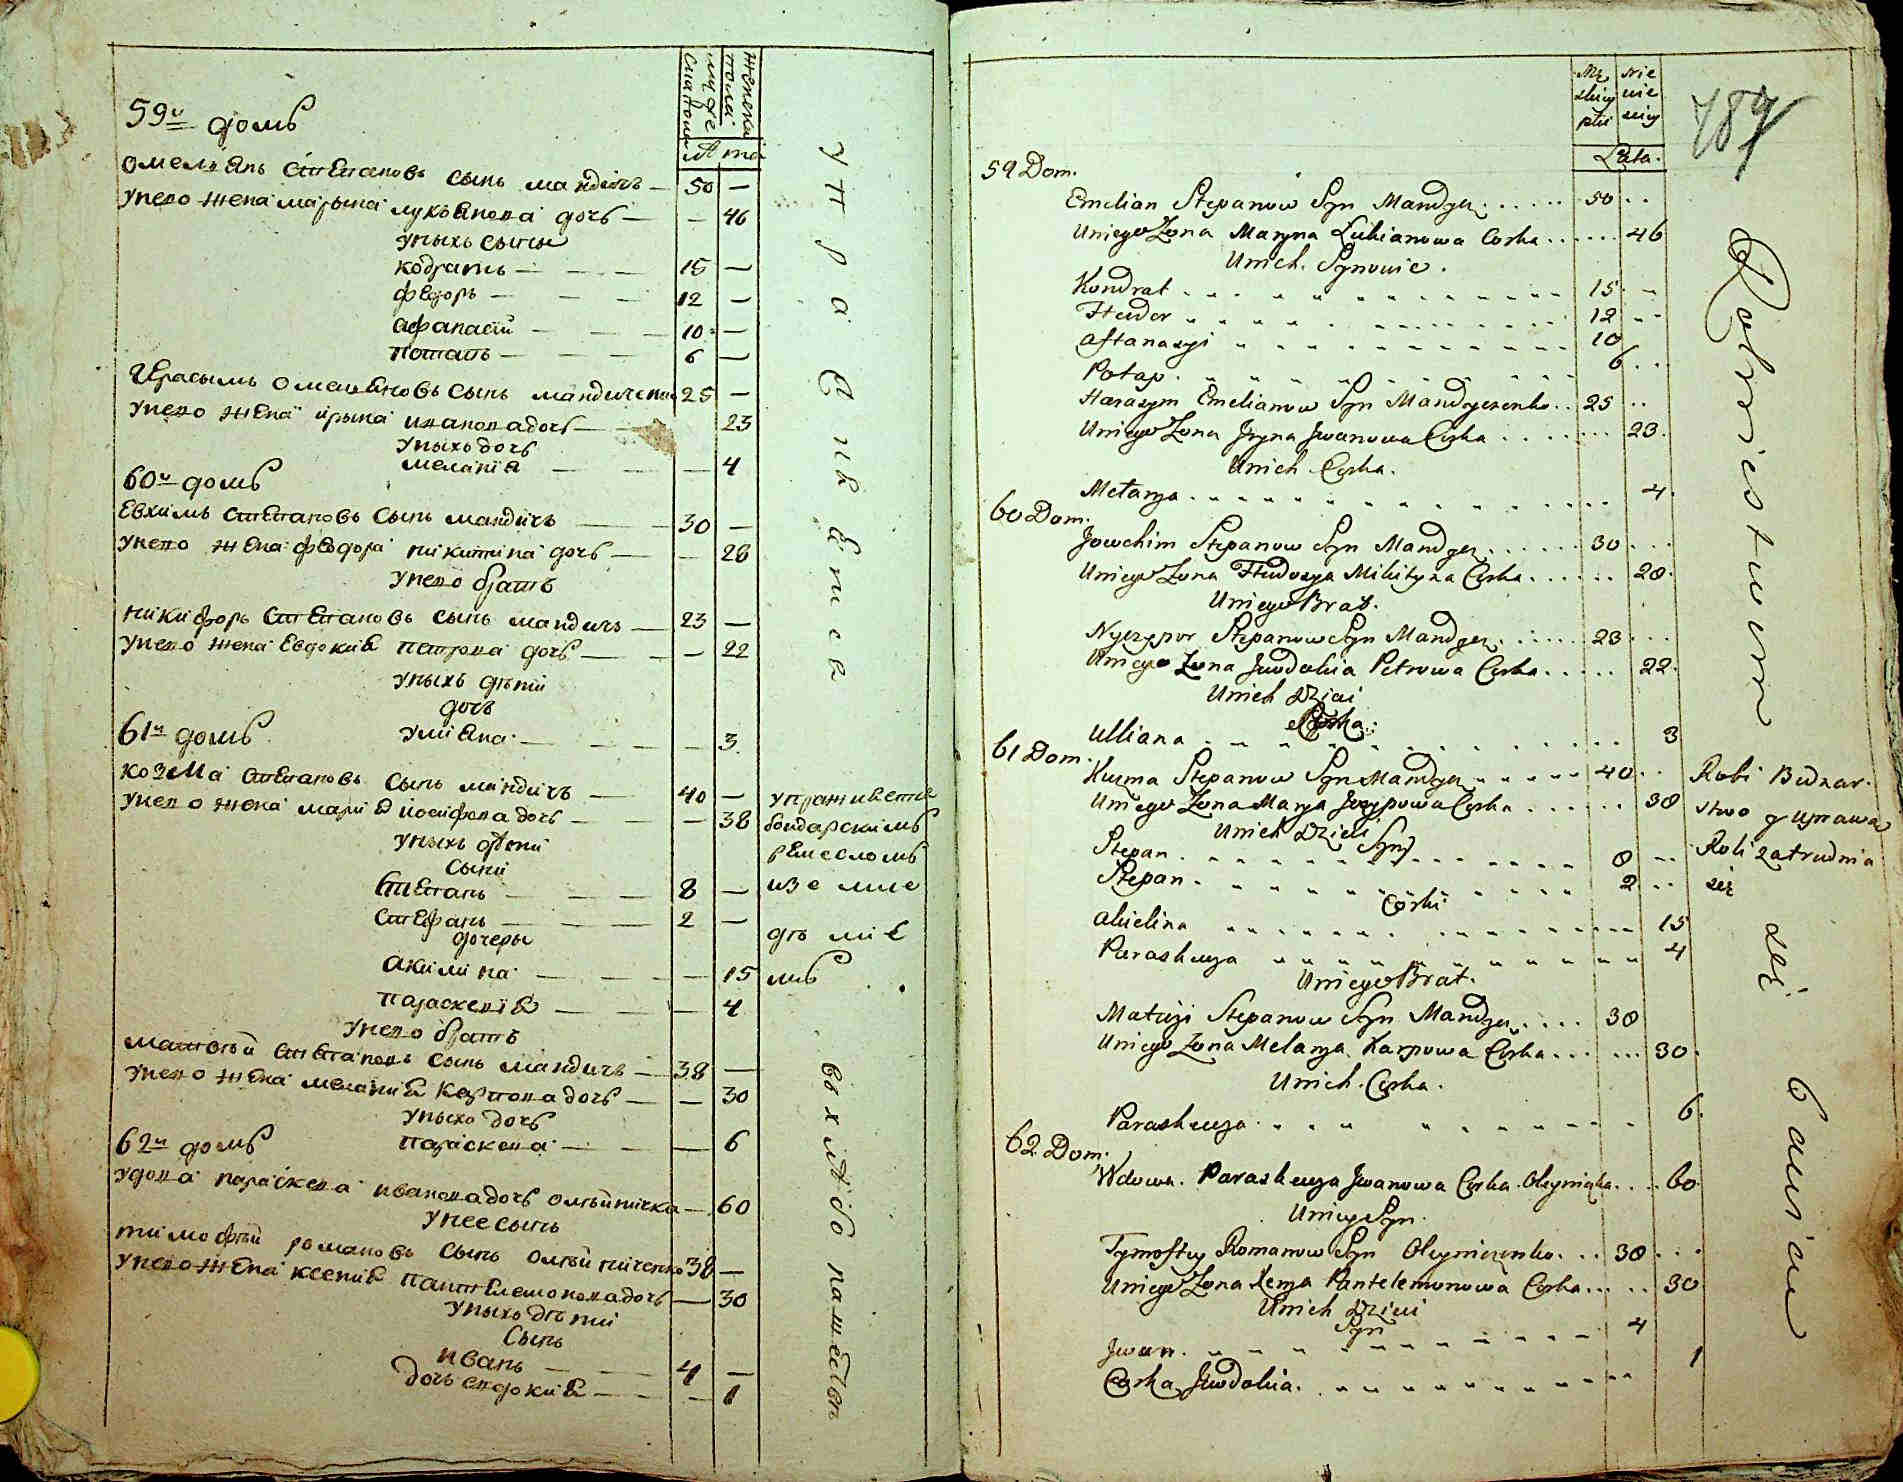 мужеска пола
женска пола
лѣта
59й домъ
Омелѣянъ Степановъ сынъ Мандичъ — 50 —
У него жена Марына Лукѣянова дочь — — 46
У ныхъ сыны
Кодратъ — — — 15 —
Федоръ — — — 12 —
Афанасій — — — 10 —
Потапъ — — — 6 —
Герасымъ Омеляновъ сынъ Мандиченко 25 —
У него жена Ирына Иванова дочь — 23
У ныхъ дочь
Меланія — — — 4
60й домъ
Евхимъ Степановъ сынъ Мандичъ — 30 —
У него жена Феодора Никитина дочь — — 28
У него братъ
Никифоръ Степановъ сынъ Мандичъ — 23 —
У него жена Евдокия Петрова дочь — — 22
У ныхъ дѣти
дочь
61й домъ
Улияна — — — 3
Козма Степановъ сынъ Мандичъ — 40 —
У него жена Мария Иосифова дочь — — 38
У ныхъ дѣти
сыны
Степанъ — — — 8 —
Стефанъ — — — 2 —
дочеры
Акилина — — — 15
Параскевія — — — 4
У него братъ
Матвѣй Степановъ сынъ Мандичъ — 38 —
У него жена Мелания Карпова дочь — — 30
У ныхъ дочь
62й домъ
Параскева — — 6
Удова Параскева Иванова дочь Олѣйничка — 60
У нее сынъ
Тимофѣй Романовъ сынъ Олѣйниченко 38 —
У него жена Ксения Пантелемонова дочь — 30
У ныхъ дѣти
сынъ
Иванъ — — 4 —
дочь Евдокия — — — 1
упражняется
вхлѣбопашествѣ
бондарскимъ
ремесломъ
и земле
дѣлие
мъ
Męzkiey płci
Niewieściey
Lata.
789
59 Dom.
Emelian Stepanow Syn Mandycz . . . . . 50 . .
Uniego Zona Maryna Lukianowa Corka . . . . . . 46
Unich Synowie.
Kondrat . . . . . 15 . .
Fteodor . . . . . 12 . .
Aftanazyi . . . . . 10
Potap . . . . . 6 . . .
Harasym Emelianow Syn Mandyczenko . . 25 . .
Uniego Zona Jryna Jwanowa Corka . . . . . . . 23.
Unich Corka.
Melanya . . . . . 4.
60 Dom.
Jowchim Stepanow Syn Mandycz . . . . . . 30 . . .
Uniego Zona Fteodozya Mikityna Corka . . . . . . 28.
Uniego Brat.
Nyczypor Stepanow Syn Mandycz . . . . . . 23 . . .
Uniego Zona Jewdokia Petrowa Corka . . . . . 22.
Unich Dzieci
Corka:
Ulliana . . . . . 3
61 Dom.
Kuzma Stepanow Syn Mandycz . . . . . 40 . .
Uniego Zona Marya Jozypowa Corka . . . . . . 38
Unich Dzieci Syny
Stepan . . . . . 8 . .
Stepan . . . . . 2 . .
Corki
Akielina . . . . . 15
Paraskewya . . . . . 4
Uniego Brat.
Matwiyi Stepanow Syn Mandycz . . . . 38
Uniego Zona Melanya Karpowa Corka . . . . . . 30.
Unich Corka.
Paraskewya . . . . . 6.
62 Dom.
Wdowa Paraskewya Jwanowa Corka Oleyniczka . . . . 60.
Uniey Syn.
Tymoftey Romanow Syn Oleyniczenko . . . 38 . . .
Uniego Zona Xenya Pantelemonowa Corka . . . . . 30
Unich Dzieci
Syn
Jwan . . . . . 4
Corka Jewdokia . . . . . 1
Robi Bednar
stwo y uprawą
Roli zatrudnia
się
Rolnictwem
się
bawiou